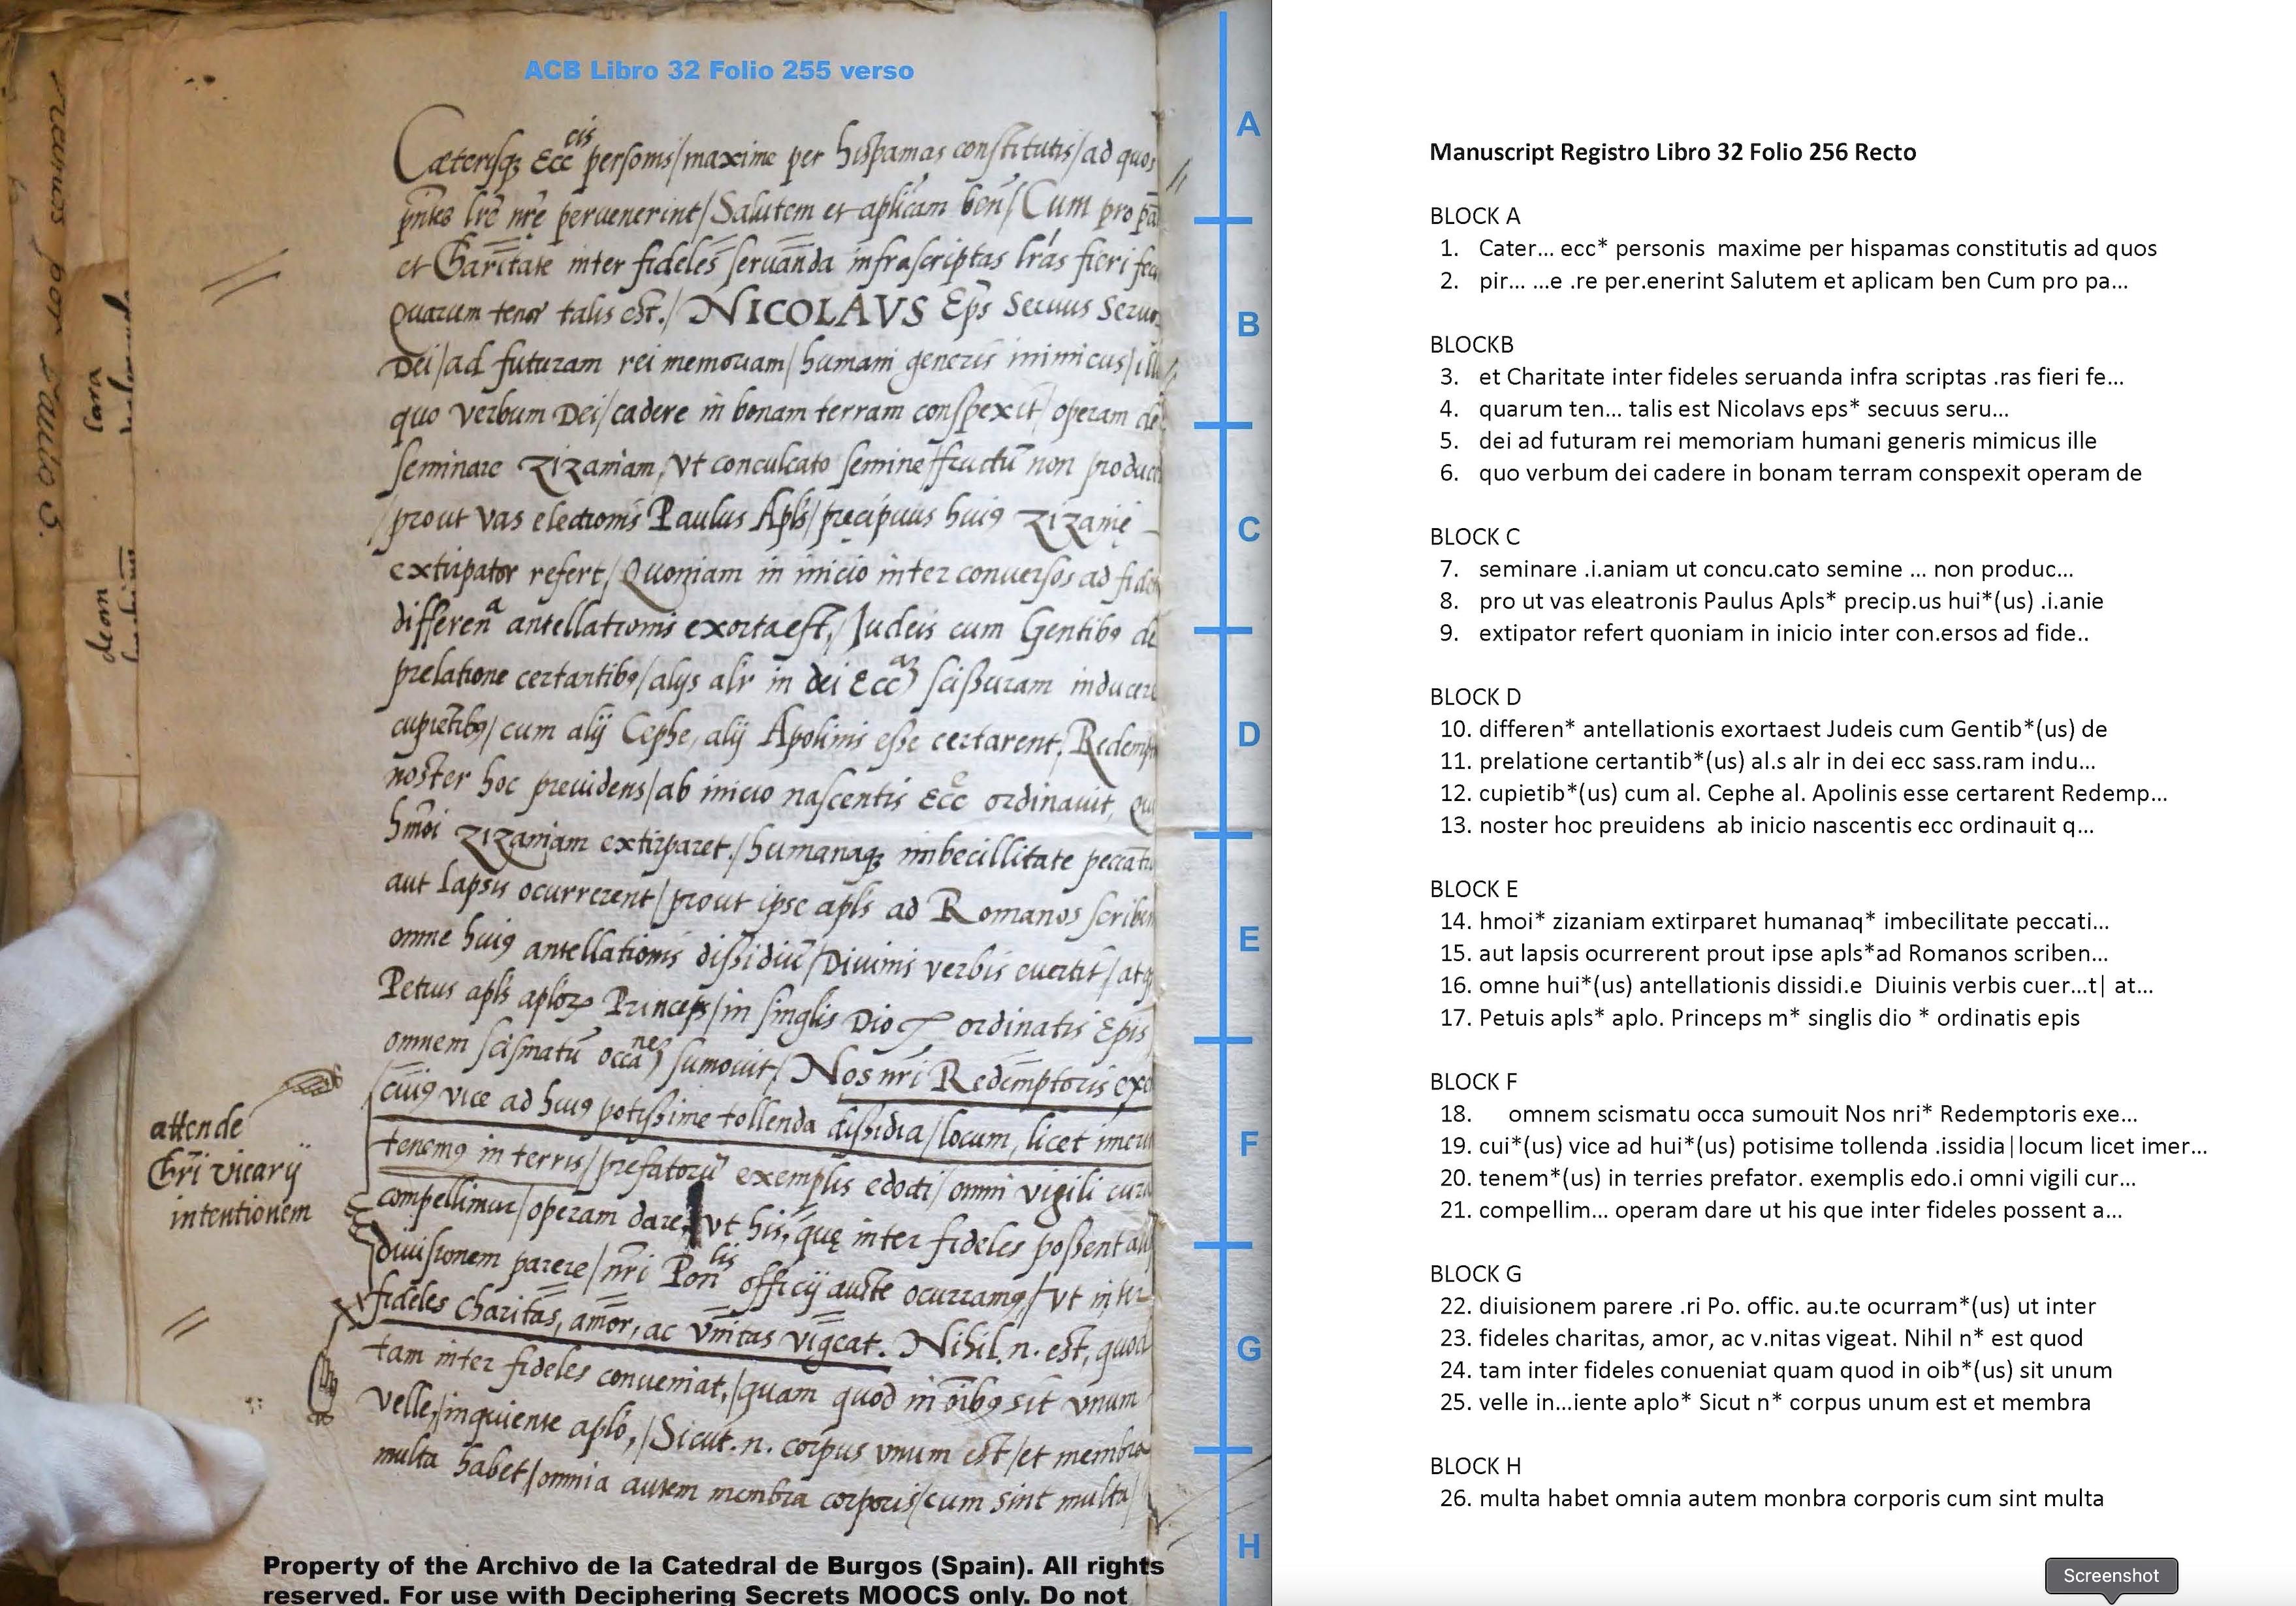 ACB Libro 32 Folio 255 verso
Cæterisq; Ecc cis personis/maxime per hispanias constitutis/ad quos
pñtes lrẽ nrẽ peruenerint/Salutem et aplicam ben/Cum pro pa
et Charitate inter fideles seruanda infrascriptas lras fieri fec
Quarum tenor talis est./NICOLAVS Eps Seruus Seruo
Dei/ad futuram rei memoriam/humani generis inimicus/ill
quo verbum Dei/cadere in bonam terram conspexit/operam de
seminare zizaniam, vt conculcato semine fructũ non produc
/prout vas electionis Paulus Apls/precipuus huiꝰ zizanię
extirpator refert/Quoniam in inicio inter conuersos ad fide
differenª antellationis exorta est,/Judeis cum Gentibꝰ de
prelatione certantibꝰ/alijs alr in dei Ecc scissuram inducere
cupiẽtibꝰ/cum alij Cephe, alij Apolinis esse certarent, Redemp
noster hoc preuidens/ab inicio nascentis Ecc ordinauit, Qu
hmõi zizaniam extirparet./humanaq; imbecillitate peccati
aut lapsis ocurrerent/prout ipse apls ad Romanos scriben
omne huiꝰ antellationis dissidiũ/Diuinis verbis euertit/atq
Petrus apls aploꝝ Princeps/in singlis Dio ordinatis Epis
omnem scismatũ occa nez sumouit/Nos nri Redemptoris exe
cuiꝰ vice ad huiꝰ potissime tollenda dissidia/locum, licet imeri
tenemꝰ in terris/prefatorũ exemplis edocti/omni vigili cura
compellimur/operam dare, vt his, quę inter fideles possent ali
diuisionem parere/nri Pon lis officij auste ocurramꝰ,/vt inter
fideles charitas, amor, ac vnitas vigeat. Nihil .n. est, quod
tam inter fideles conueniat,/quam quod in oĩbꝰ sit vnum
velle,/inquiente aplo,/Sicut .n. corpus vnum est/et membra
multa habet/omnia autem membra corporis/cum sint multa/
attende
Chri vicarij
intentionem
A
B
C
D
E
F
G
H
Property of the Archivo de la Catedral de Burgos (Spain). All rights
reserved. For use with Deciphering Secrets MOOCS only. Do not
Manuscript Registro Libro 32 Folio 256 Recto
BLOCK A
1. Cater... ecc* personis maxime per hispamas constitutis ad quos
2. pir... ...e .re per.enerint Salutem et aplicam ben Cum pro pa...
BLOCKB
3. et Charitate inter fideles seruanda infra scriptas .ras fieri fe...
4. quarum ten... talis est Nicolavs eps* secuus seru...
5. dei ad futuram rei memoriam humani generis mimicus ille
6. quo verbum dei cadere in bonam terram conspexit operam de
BLOCK C
7. seminare .i.aniam ut concu.cato semine ... non produc...
8. pro ut vas eleatronis Paulus Apls* precip.us hui*(us) .i.anie
9. extipator refert quoniam in inicio inter con.ersos ad fide..
BLOCK D
10. differen* antellationis exortaest Judeis cum Gentib*(us) de
11. prelatione certantib*(us) al.s alr in dei ecc sass.ram indu...
12. cupietib*(us) cum al. Cephe al. Apolinis esse certarent Redemp...
13. noster hoc preuidens ab inicio nascentis ecc ordinauit q...
BLOCK E
14. hmoi* zizaniam extirparet humanaq* imbecilitate peccati...
15. aut lapsis ocurrerent prout ipse apls*ad Romanos scriben...
16. omne hui*(us) antellationis dissidi.e Diuinis verbis cuer...t| at...
17. Petuis apls* aplo. Princeps m* singlis dio * ordinatis epis
BLOCK F
18. omnem scismatu occa sumouit Nos nri* Redemptoris exe...
19. cui*(us) vice ad hui*(us) potisime tollenda .issidia|locum licet imer...
20. tenem*(us) in terries prefator. exemplis edo.i omni vigili cur...
21. compellim... operam dare ut his que inter fideles possent a...
BLOCK G
22. diuisionem parere .ri Po. offic. au.te ocurram*(us) ut inter
23. fideles charitas, amor, ac v.nitas vigeat. Nihil n* est quod
24. tam inter fideles conueniat quam quod in oib*(us) sit unum
25. velle in...iente aplo* Sicut n* corpus unum est et membra
BLOCK H
26. multa habet omnia autem monbra corporis cum sint multa
Screenshot